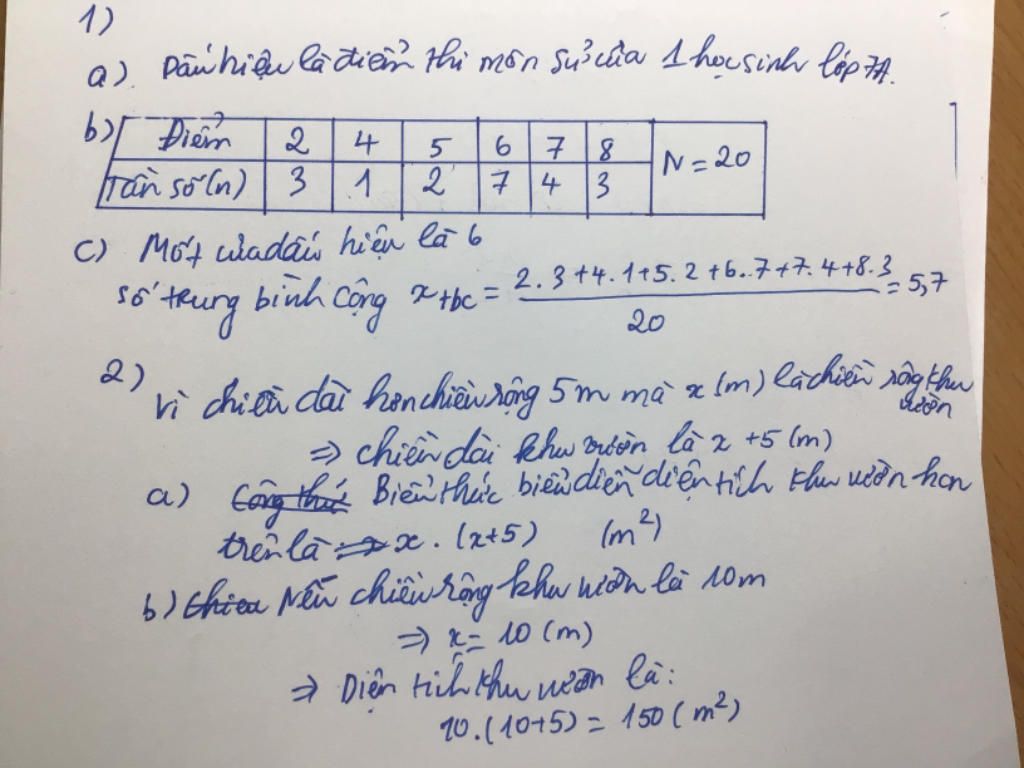 1)
a) Dấu hiệu là điểm thi môn sử của 1 học sinh lớp 7A.
b) Điểm 2 4 5 6 7 8 N = 20
Tần số (n) 3 1 2 7 4 3
c) Mốt của dấu hiệu là 6
số trung bình cộng x+bc = 2.3+4.1+5.2+6.7+7.4+8.3 / 20 = 5,7
2)
Vì chiều dài hơn chiều rộng 5m mà x (m) là chiều rộng khu vườn
⇒ chiều dài khu vườn là x + 5 (m)
a) Công thức Biểu thức biểu diễn diện tích khu vườn hơn
trên là ⇒ x . (x+5) (m²)
b) Chieu Nếu chiều rộng khu vườn là 10m
⇒ x = 10 (m)
⇒ Diện tích khu vườn là:
10.(10+5) = 150 (m²)